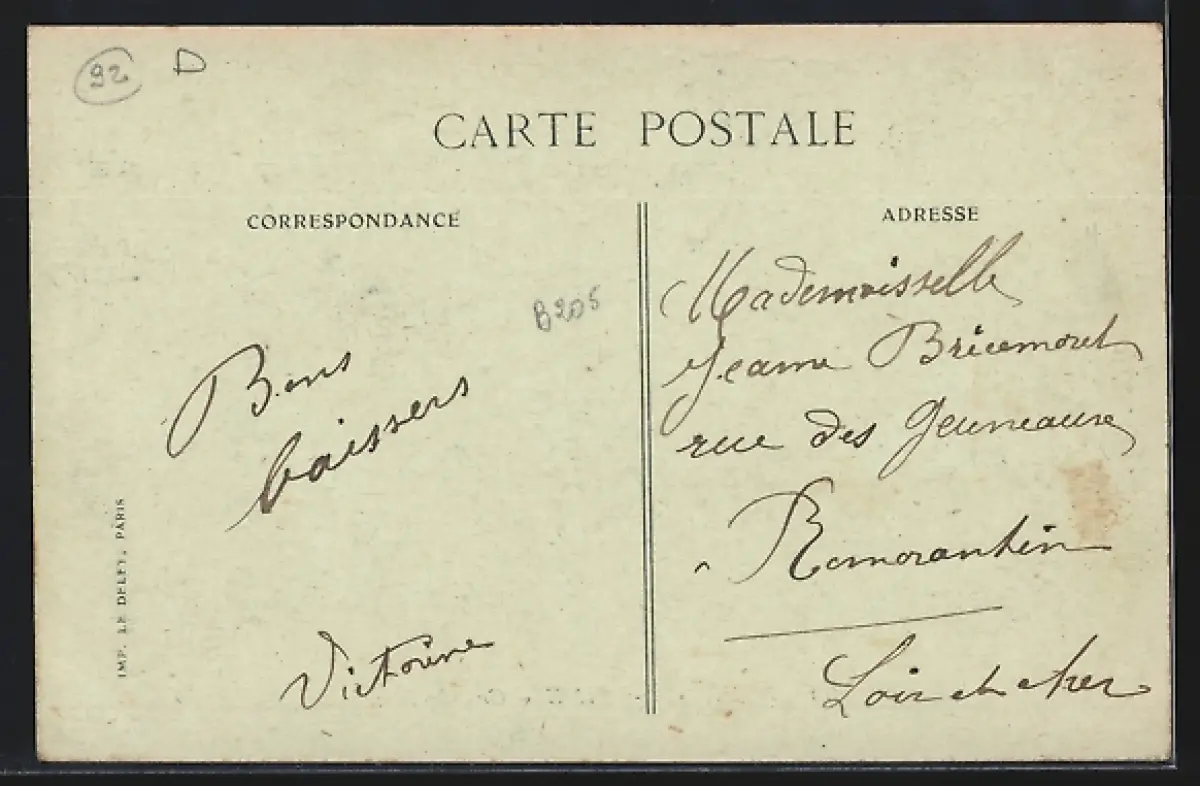 92 D
CARTE POSTALE
CORRESPONDANCE
Bons
baissers
Victorine
B205
IMP. LE DELEY, PARIS
ADRESSE
Mademoisselle
Jeanne
rue des
Romorantin
Loir et cher